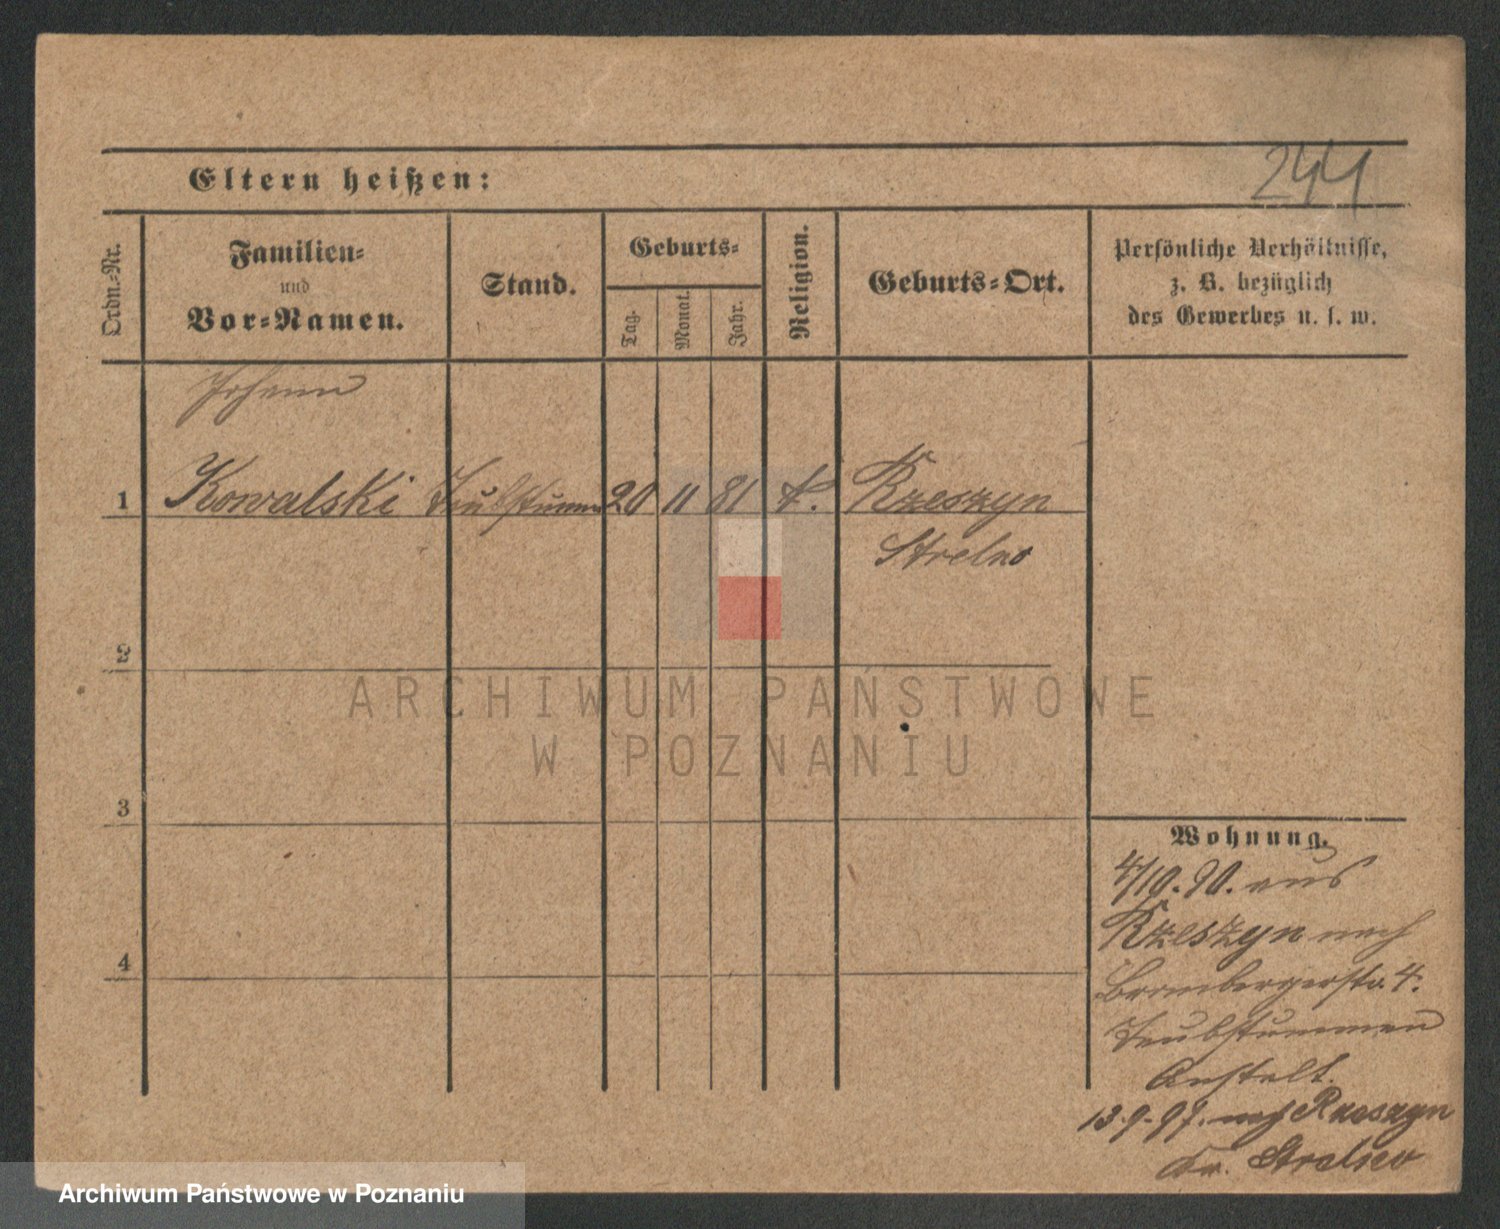 244
Eltern heißen:
Ordn.-Nr.
Familien- und Vor-Namen.
Stand.
Geburts-
Tag.
Monat.
Jahr.
Religion.
Geburts-Ort.
Persönliche Verhältnisse,
z. B. bezüglich
des Gewerbes u. s. w.
Johann
1 Kowalski Taubstumm 20 11 81 k. Rzeszyn
Strelno
2
3
4
Wohnung.
4/10. 90. aus
Rzeszyn nach
Brombergerstr. 4.
Taubstummen
Anstalt.
13.9.97. nach Rzeszyn
Kr. Strelno
ARCHIWUM PAŃSTWOWE
W POZNANIU
Archiwum Państwowe w Poznaniu